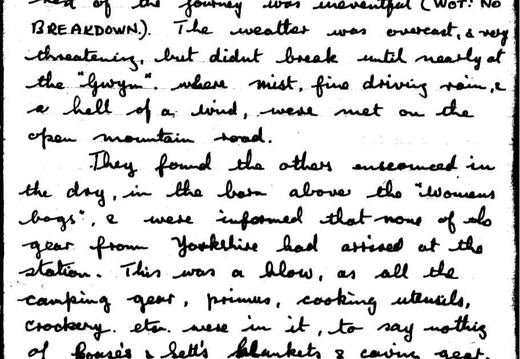 of the journey was uneventful (WOT! NO
BREAKDOWN). The weather was overcast, & very
threatening, but didnt break until nearly at
the "Gwyn". where mist, fine driving rain, &
a hell of a wind, were met on the
open mountain road.
They found the others ensconced in
the dry, in the barn above the "Womens
bogs", & were informed that none of the
gear from Yorkshire had arrived at the
station. This was a blow, as all the
camping gear, primus, cooking utensils,
crockery. etc. were in it, to say nothing
of & Sett's blankets & caving gear.